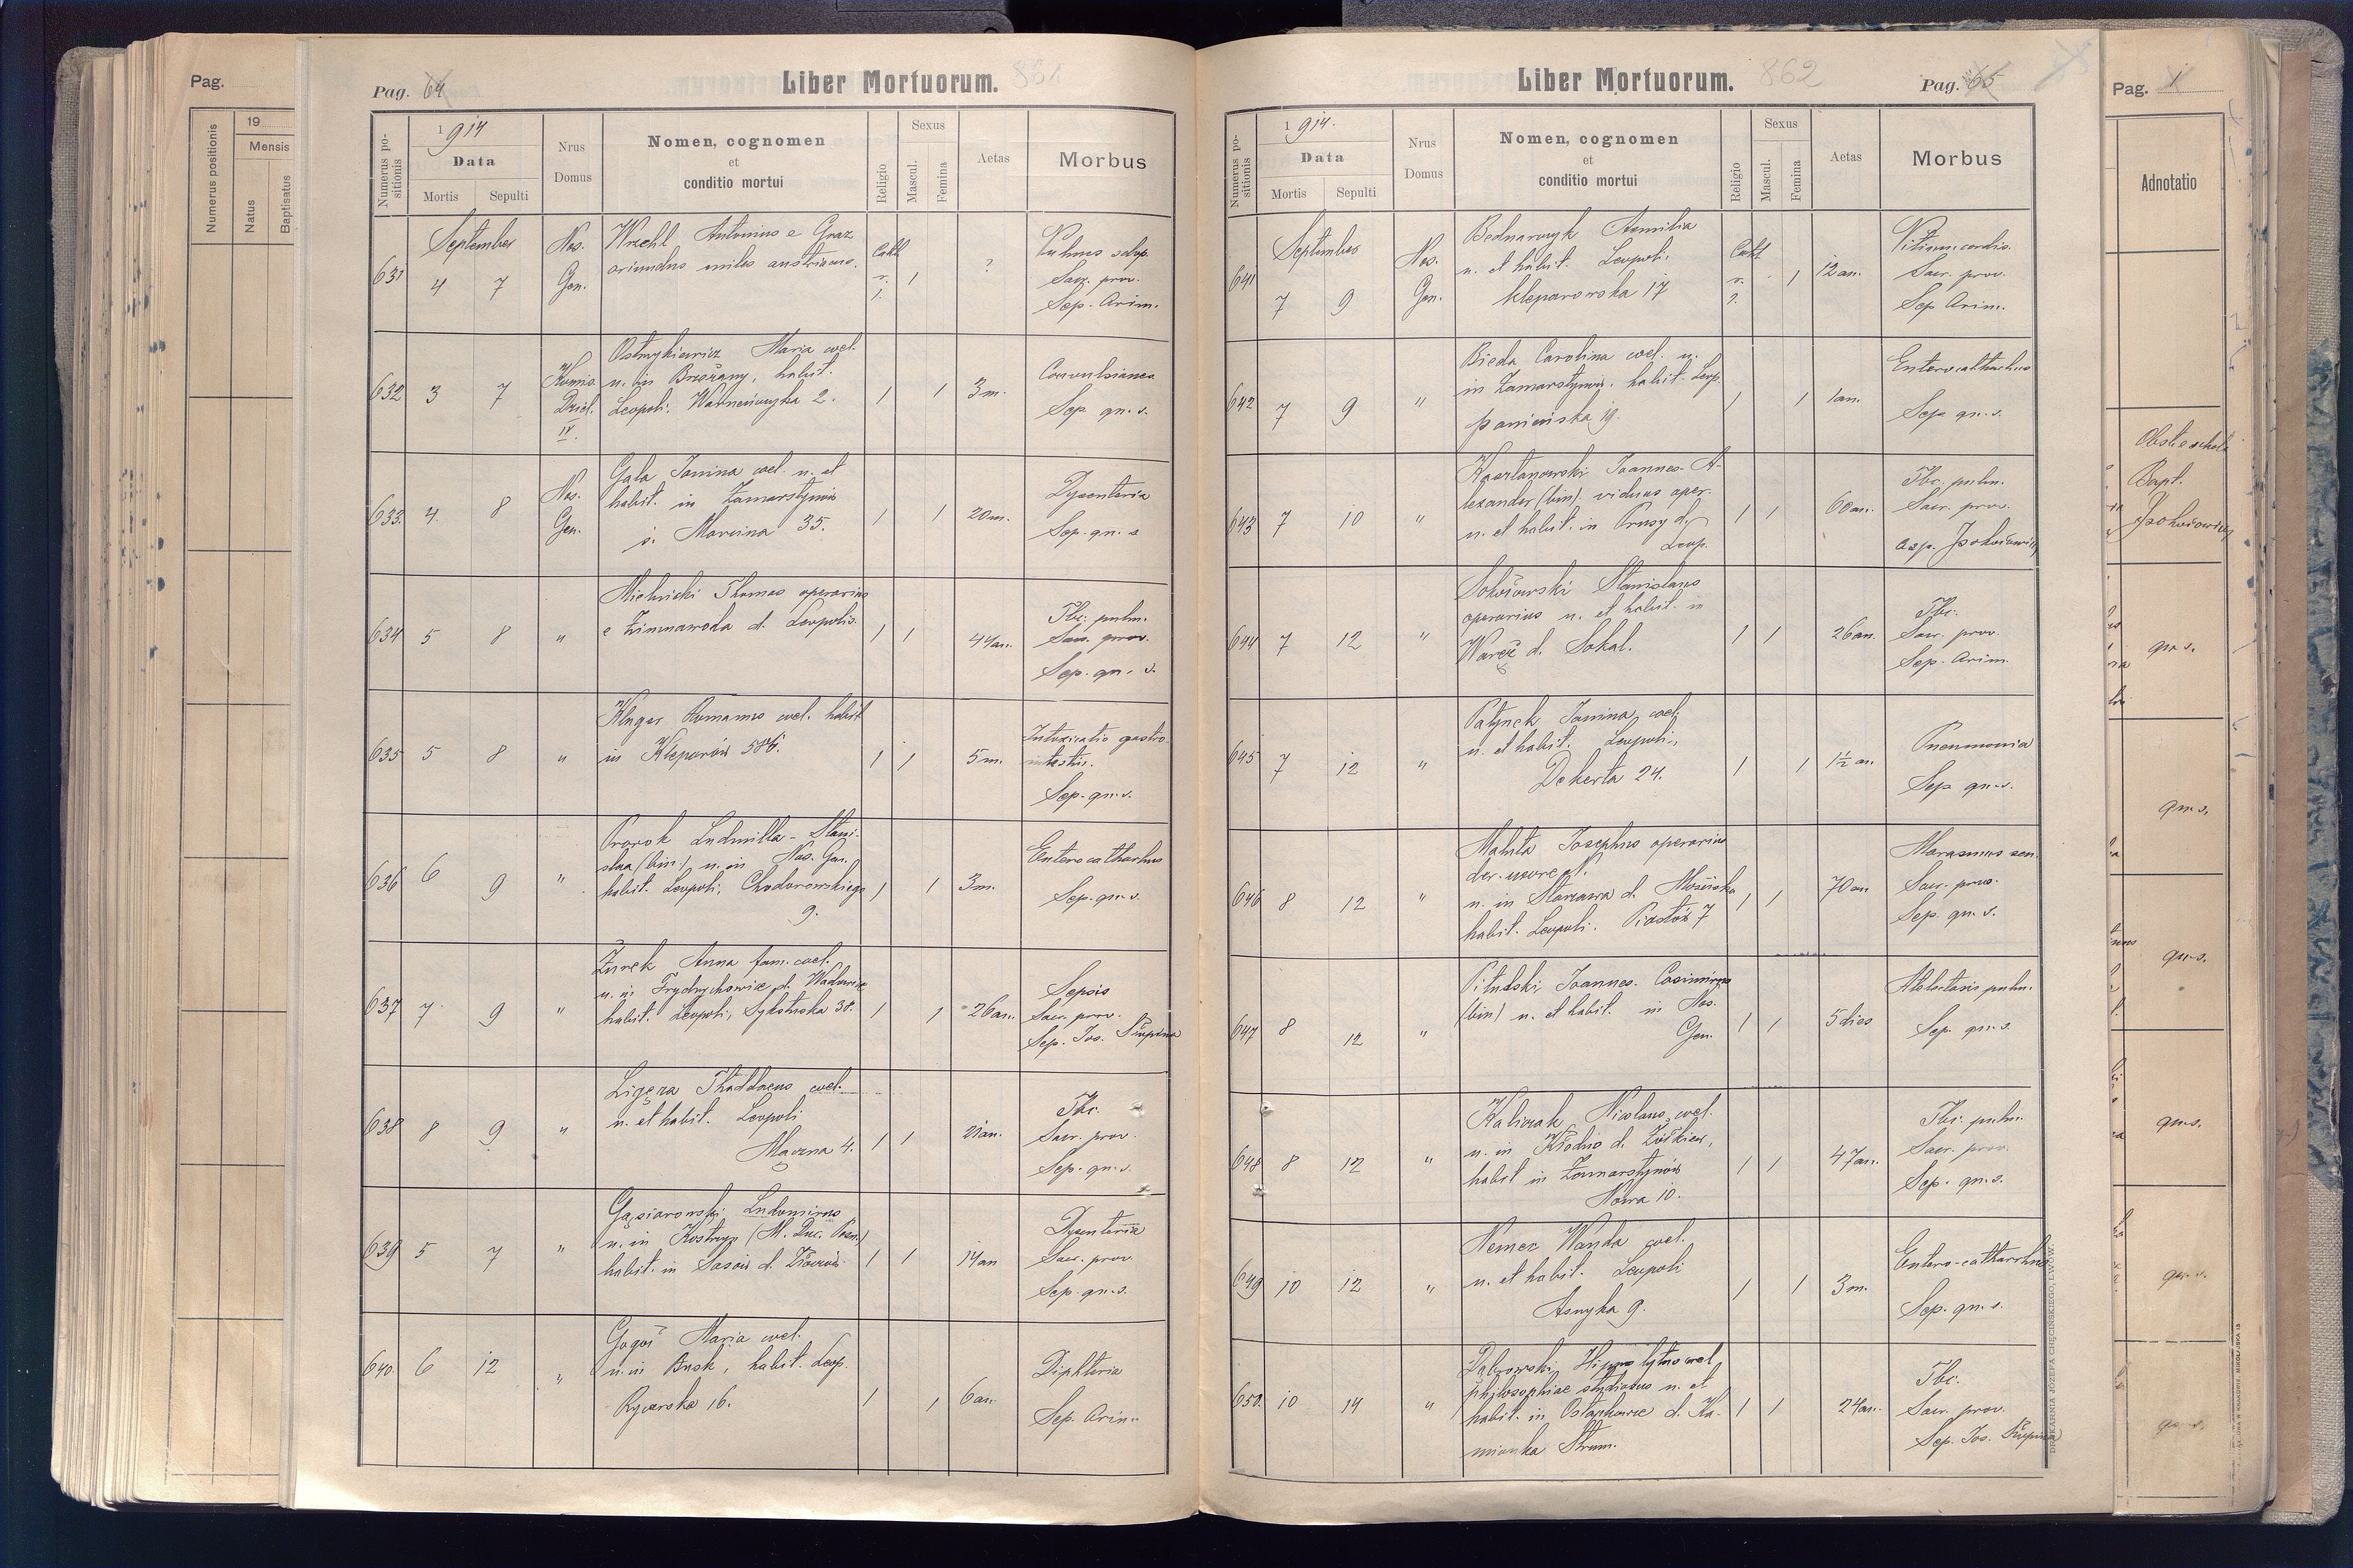 Pag.
Numerus positionis
19
Mensis
Natus
Baptisatus
Pag. 64
Liber Mortuorum. 861
Numerus positionis
1914
Data
Mortis
Sepulti
Nrus Domus
Nomen, cognomen
et
conditio mortui
Religio
Sexus
Mascul.
Femina
Aetas
Morbus
September
631 4 7
Nos.
Gen.
Antonius e Graz
oriundus miles austriacus.
Cath
r.
l.
1
?
Vulnus sclop.
Sacr. prov.
Sep. Arim.
632 3 7
Komis.
Dziel.
IV.
Maria coel.
n. in Brzeżany, habit.
Leopoli. 2.
1 1 3 m.
Sep. qu. s.
633. 4. 8
Nos.
Gen.
Gala Janina coel. n. et
habit. in Zamarstynów
ś. Marcina 35.
1 1 20 m.
Dysenteria
Sep. qu. s
634 5 8 "
Mielnicki Thomas operarius
e Zimnawoda d. Leopolis.
1 1 44 an.
Tbc. pulm.
Sacr. prov.
Sep. qu. s.
635 5 8 "
Kluger Romanus coel. habit
in Kleparów 586.
1 1 5 m.
Intoxicatio gastro
intestin.
Sep. qu. s.
636 6 9 "
Prorok Ludmilla - Stani-
slaa (bin.) n. in Nos. Gen.
habit. Leopoli, Chodorowskiego
9.
1 1 3 m.
Enterocatharhus
Sep. qu. s.
637 7 9 "
Żurek Anna fam. coel.
n. in Frydrychowice d. Wadowice
habit. Leopoli, Sykstuska 38.
1 1 26 an.
Sepsis
Sacr. prov.
Sep. Jos. Skrępina
638 8 9 "
Ligęza Thaddaeus coel.
n. et habit. Leopoli
Mączna 4.
1 1 21 an.
Tbc.
Sacr. prov.
Sep. qu. s.
639 5 7 "
Gąsiarowski Ludomirus
n. in Kostrzyn (M. Duc. Posn.)
habit. in Sasów d. Złoczów.
1 1 14 an
Dysenteria
Sacr. prov.
Sep. qu. s.
640. 6 12 "
Gogoś Maria coel.
n. in Busk, habit. Leop.
Rycerska 16.
1 1 6 an.
Diphteria
Sep. Arim.
Liber Mortuorum. 862
Pag. 65
Numerus positionis
1914.
Data
Mortis
Sepulti
Nrus Domus
Nomen, cognomen
et
conditio mortui
Religio
Sexus
Mascul.
Femina
Aetas
Morbus
September
641 7 9
Nos.
Gen.
Bednarczyk Aemilia
n. et habit. Leopoli.
Kleparowska 17
Cath
r.
l.
1 12 an.
Vitium cordis.
Sacr. prov.
Sep Arim.
642 7 9 "
Bieda Carolina coel. n.
in Zamarstynów. habit. Leop.
Janińska 19.
1 1 1 an.
Enterocatharhus
Sep qu. s.
643 7 10 "
Kasztanowski Joannes-A-
lexander (bin). viduus oper.
n. et habit. in Prusy d.
Leop.
1 1 60 an.
Tbc. pulm.
Sacr. prov.
644 7 12 "
Sokołowski Stanislaus
operarius n. et habit. in
Waręż d. Sokal.
1 1 26 an.
Tbc.
Sacr. prov.
Sep. Arim.
645 7 12 "
Patynek Janina coel.
n. et habit. Leopoli,
Dekerta 24.
1 1 1½ an.
Pneumonia
Sep qu. s.
646 8 12 "
Maluta Josephus operarius
der. uxore
n. in Starzawa d. Mościska
habit. Leopoli. Piastów 7
1 1 70 an
Marasmus sen.
Sacr. prov.
Sep. qu. s.
647 8 12 "
Piłudski Joannes-Casimirus
(bin) n. et habit. in Nos.
Gen.
1 1 5 dies
Atelectasis pulm.
Sep. qu. s.
648 8 12 "
Kaliczak Nicolaus coel.
n. in Kłodno d. Żółkiew,
habit in Zamarstynów
Nowa 10.
1 1 47 an.
Tbc. pulm.
Sacr. prov.
Sep. qu. s.
649 10 12 "
Nemez Wanda coel.
n. et habit. Leopoli
Asnyka 9.
1 1 3 m.
Entero-catharrhus
Sep. qu. s.
650. 10 14 "
Dąbrowski Hippolytus coel
philosophiae studiosus n. et
habit. in Ostapkowce d. Ka-
mionka Strum.
1 1 24 an.
Tbc.
Sacr. prov.
Sep. Jos. Skrępina
DRUKARNIA JÓZEFA CHĘCIŃSKIEGO, LWÓW.
Pag. 1
Adnotatio
Bapt.
qu. s.
qu. s.
qu. s.
qu. s.
qu. s.
qu. s.